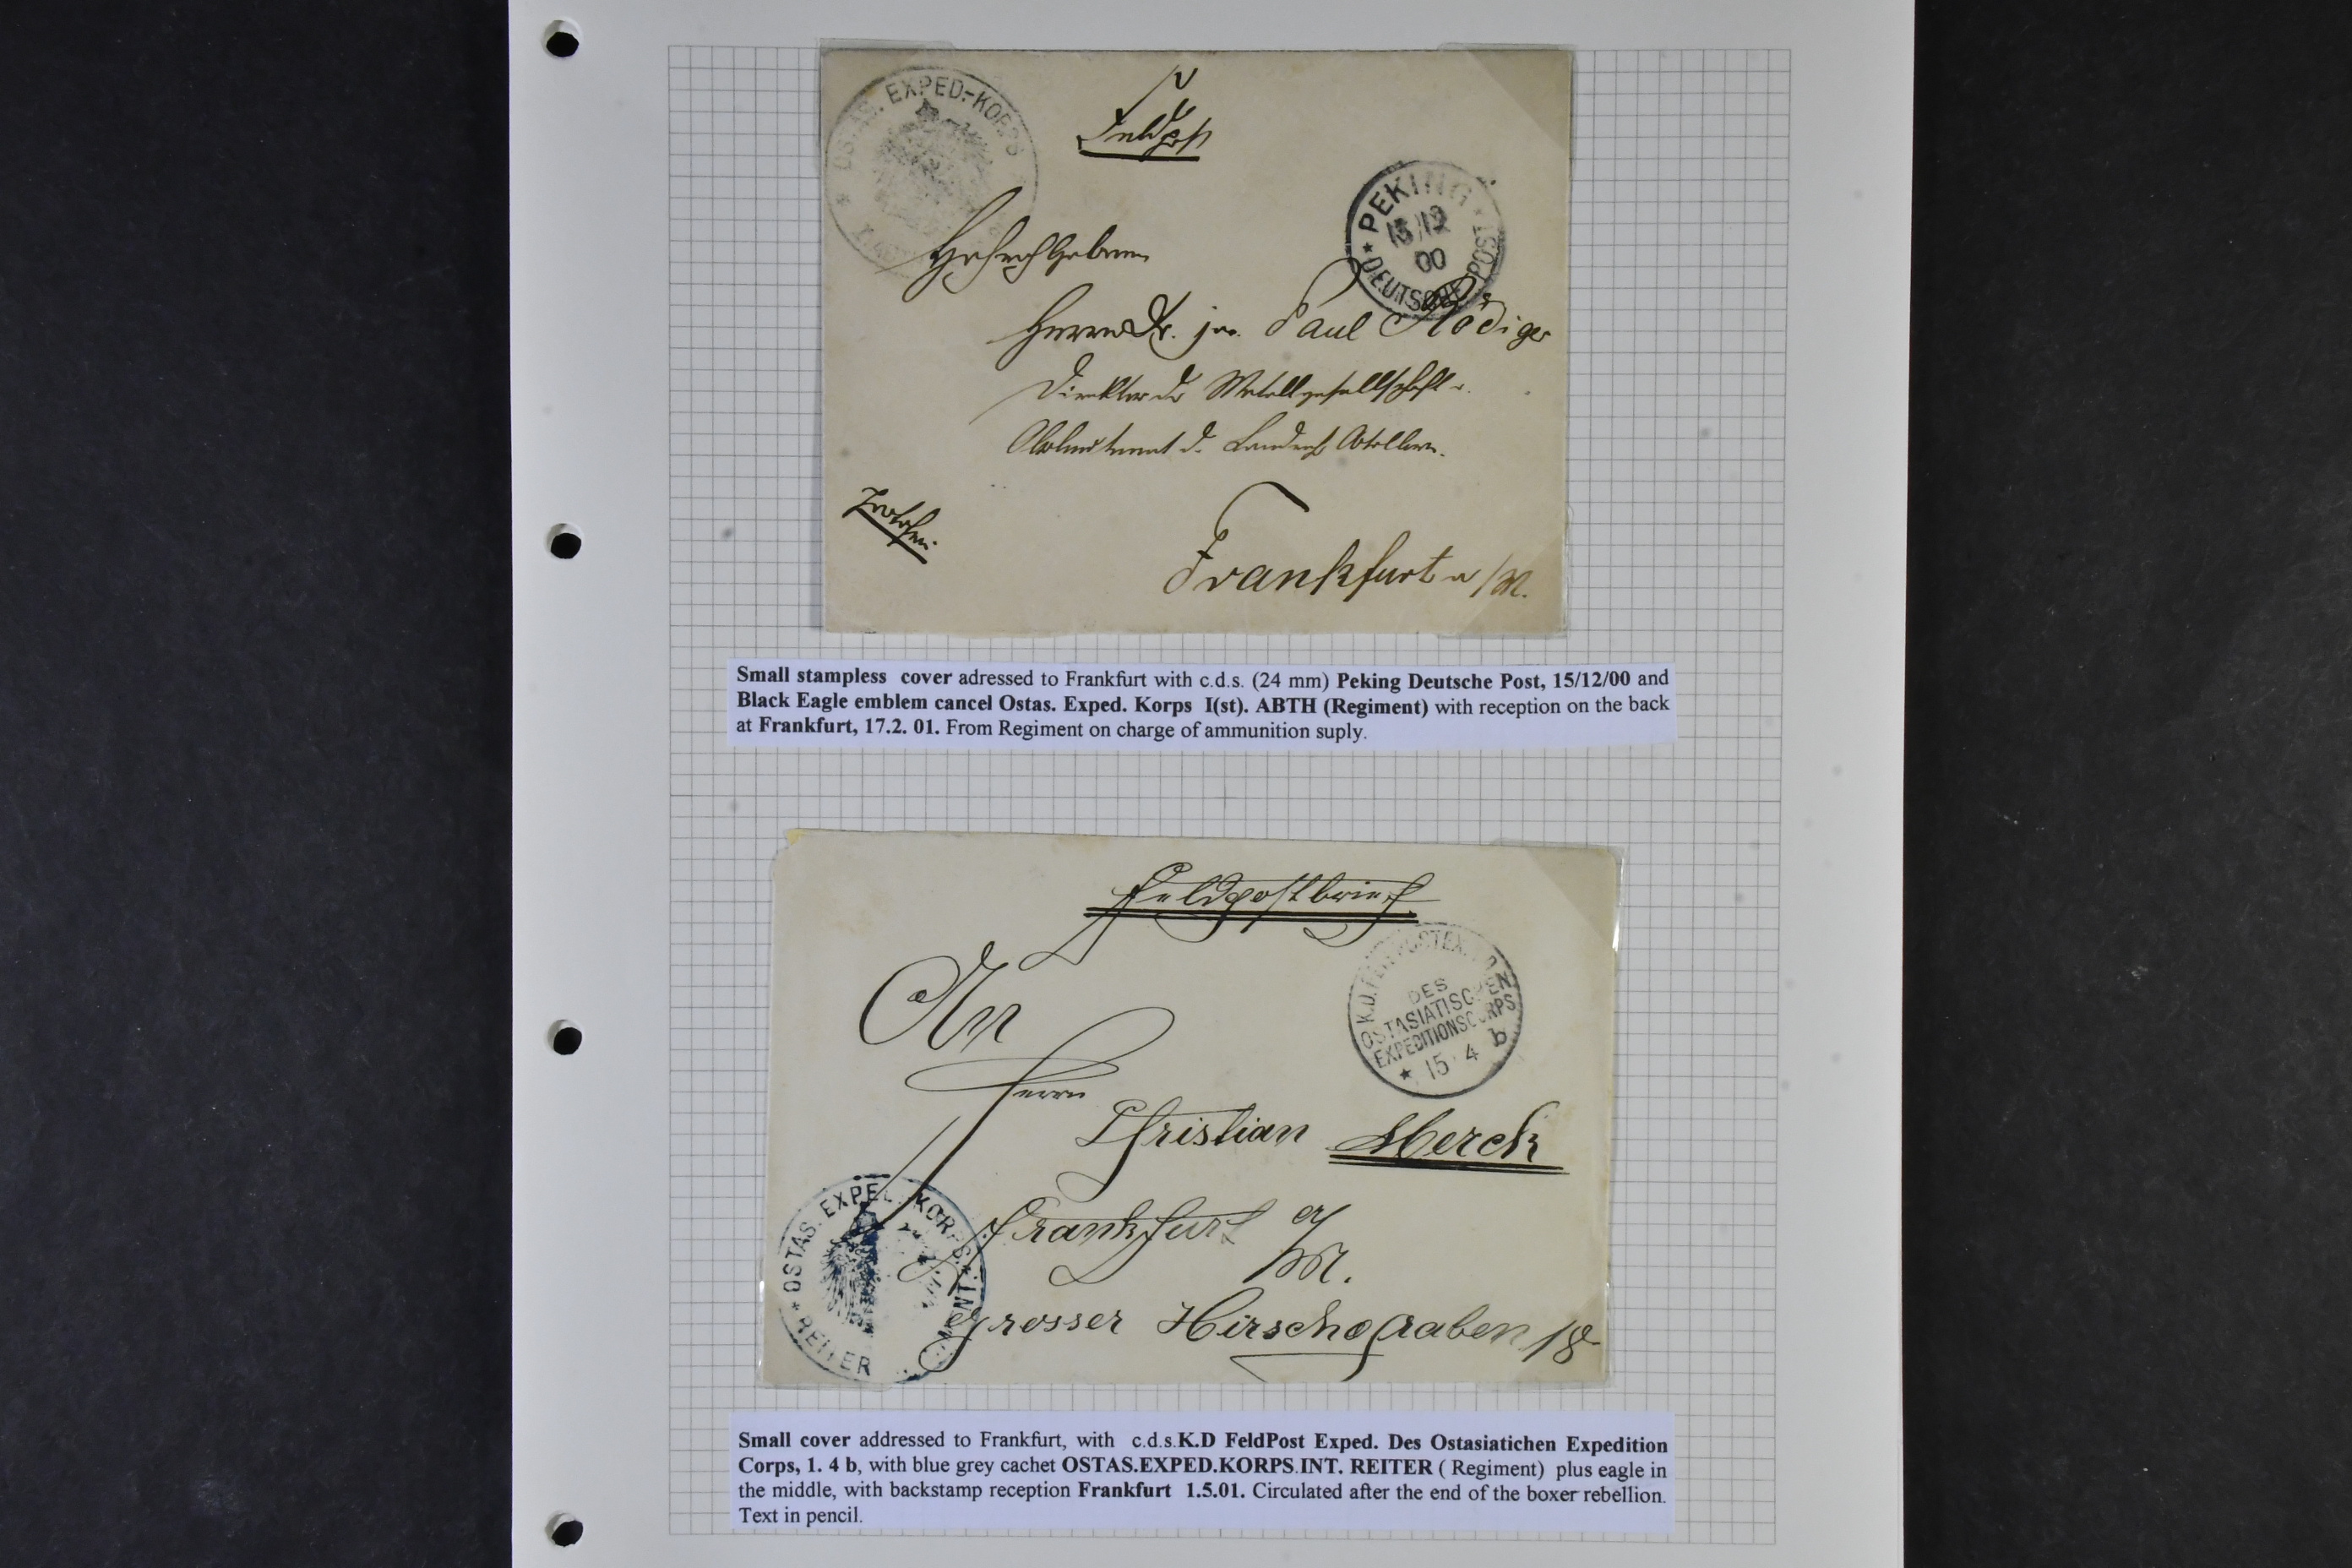 OSTAS. EXPED.-KORPS
Feldpost
PEKING
15/12
00
DEUTSCHE POST
Herrn Dr. jur. Paul Rödiger
Direktor der Metallgesellschaft u.
Frankfurt a/M.
Small stampless cover adressed to Frankfurt with c.d.s. (24 mm) Peking Deutsche Post, 15/12/00 and
Black Eagle emblem cancel Ostas. Exped. Korps I(st). ABTH (Regiment) with reception on the back
at Frankfurt, 17.2. 01. From Regiment on charge of ammunition suply.
Feldpostbrief
An
K.D. POSTEX
DES
OSTASIATISCHEN
EXPEDITIONSCORPS
15 4 b
Herrn
Christian Merck
Frankfurt a/M.
Grosser Hirschgraben 18
OSTAS. EXPED. KORPS. INT.
REITER
Small cover addressed to Frankfurt, with c.d.s.K.D FeldPost Exped. Des Ostasiatichen Expedition
Corps, 1. 4 b, with blue grey cachet OSTAS.EXPED.KORPS.INT. REITER ( Regiment) plus eagle in
the middle, with backstamp reception Frankfurt 1.5.01. Circulated after the end of the boxer rebellion.
Text in pencil.